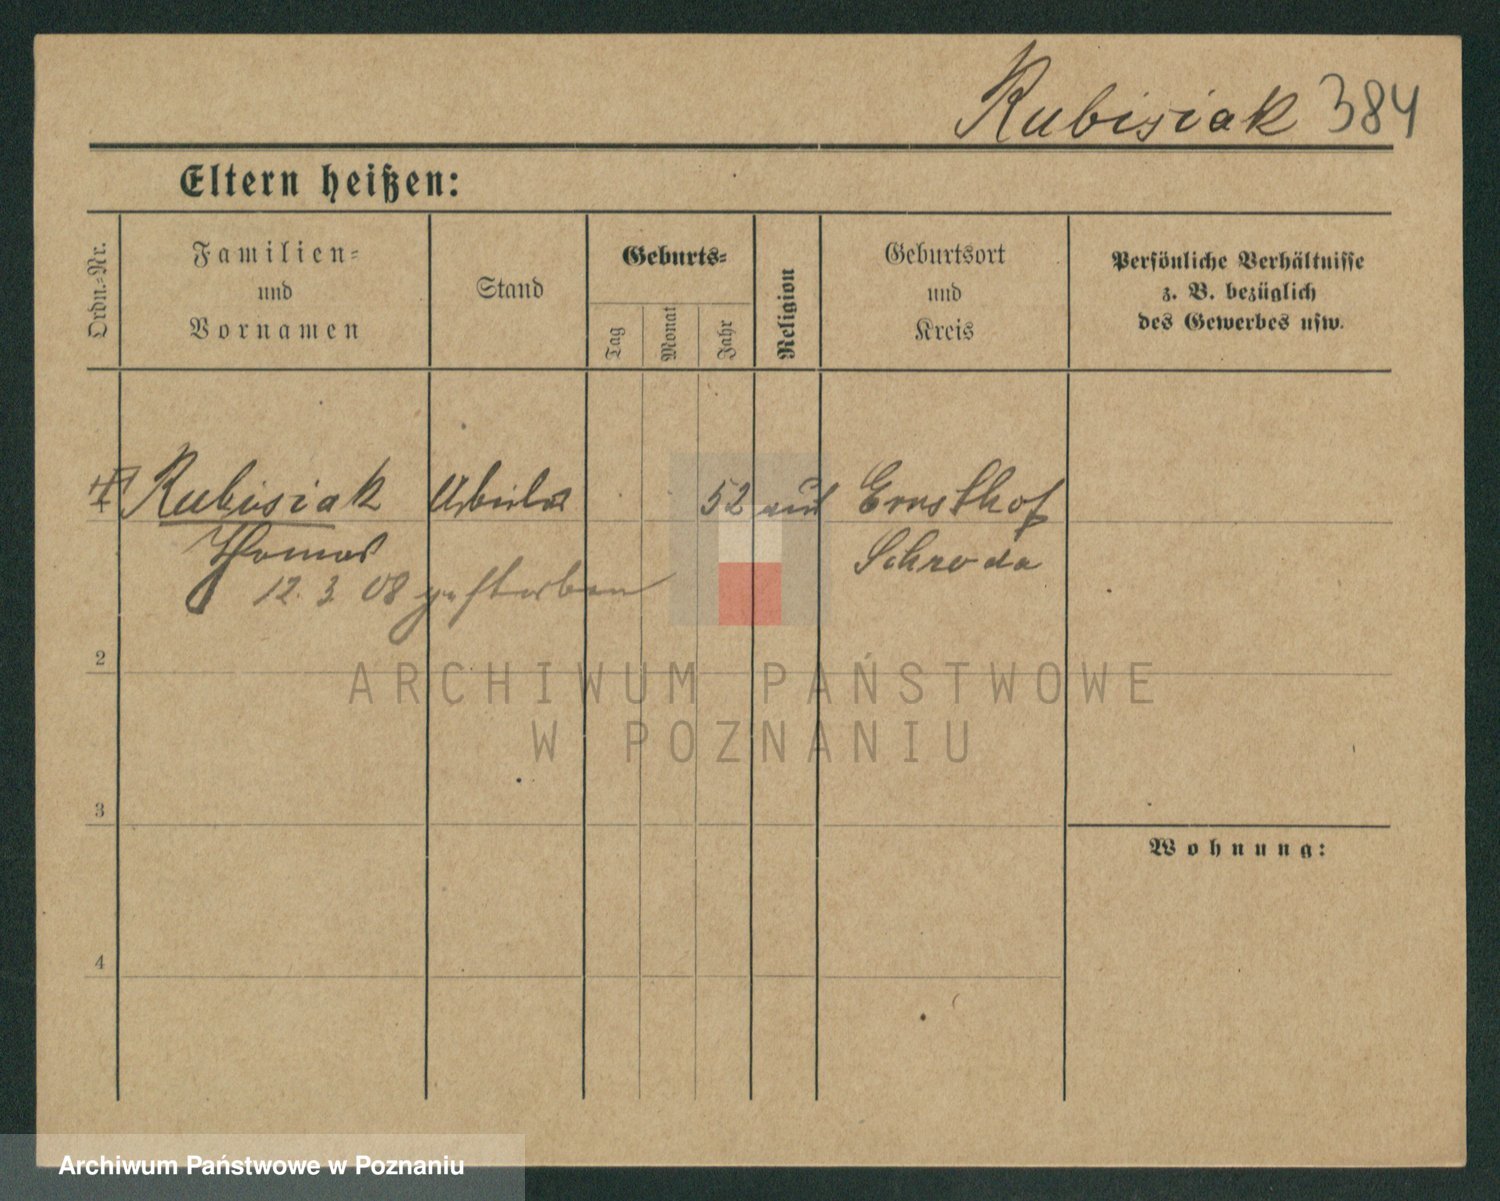 Rubisiak 384
Eltern heißen:
Ordn.-Nr.
Familien-
und
Vornamen
Stand
Geburts-
Tag
Monat
Jahr
Religion
Geburtsort
und
Kreis
Persönliche Verhältnisse
z. B. bezüglich
des Gewerbes usw.
Rubisiak Arbeiter 52 Ernsthof
Thomas Schroda
12. 3. 08 gestorben
2
3
4
Wohnung:
ARCHIWUM PAŃSTWOWE
W POZNANIU
Archiwum Państwowe w Poznaniu